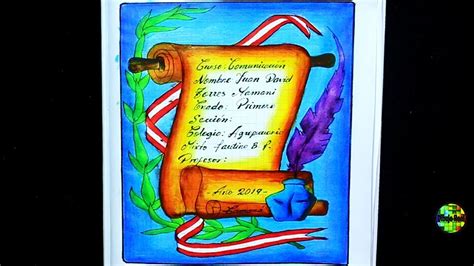 Curso: Comunicación
Nombre Juan David
Torres Mamani
Grado: Primero
Sección:
Colegio: Agropecuario
Mixto Faustino B. F.
Profesor:
- Año 2019 -